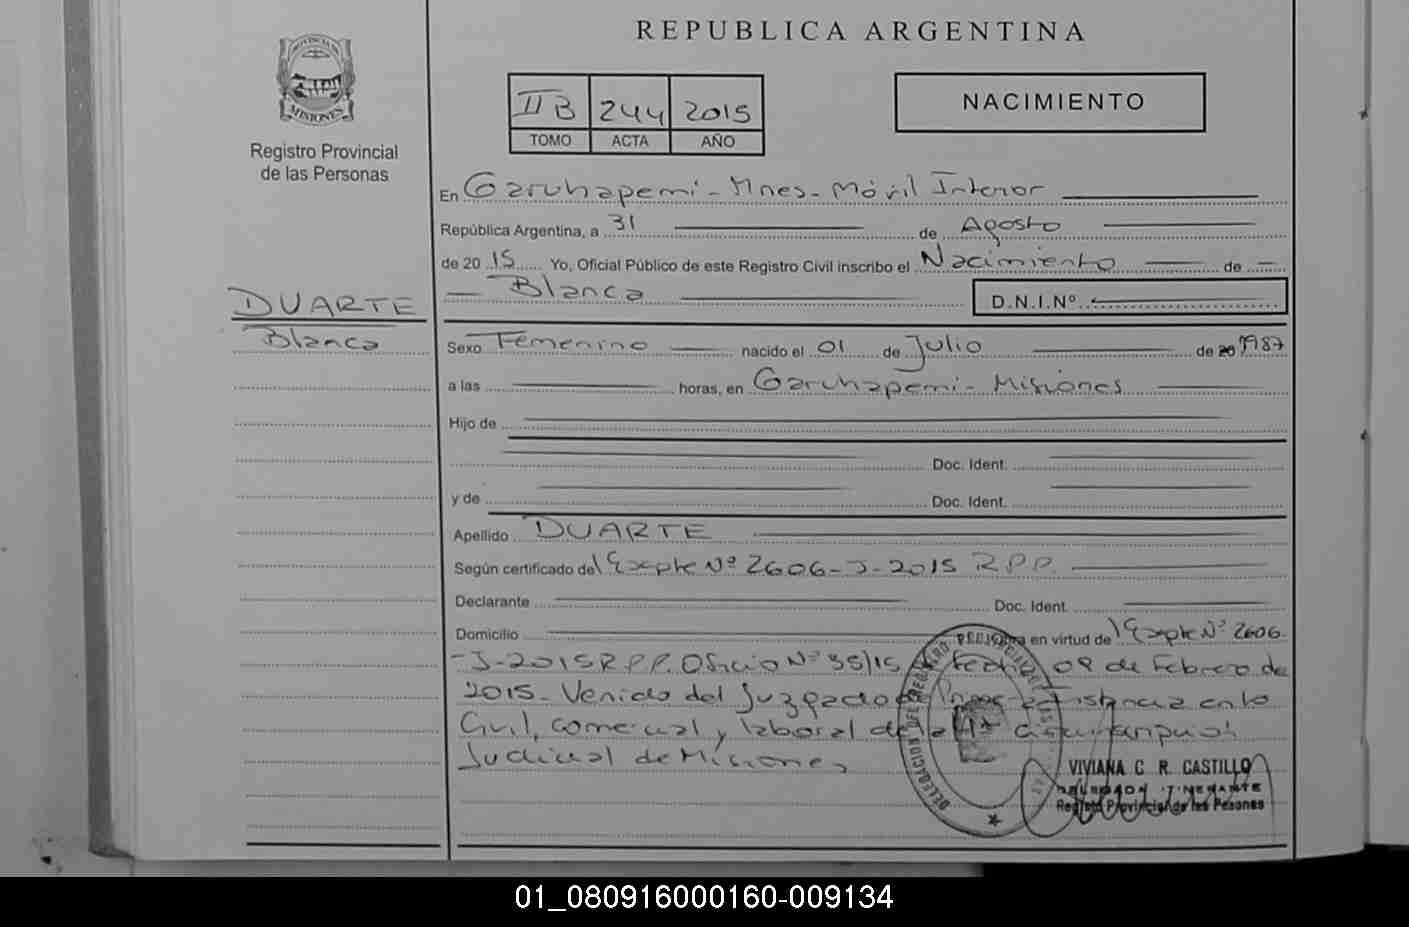 REPUBLICA ARGENTINA
PROVINCIA DE
MISIONES
Registro Provincial
de las Personas
II B 244 2015
TOMO ACTA AÑO
NACIMIENTO
En Garuhapemi - Mnes - Móvil Interior
República Argentina, a 31 de Agosto
de 20 15 Yo, Oficial Público de este Registro Civil inscribo el Nacimiento de
Blanca D.N.I.Nº
DUARTE
Blanca
Sexo Femenino nacido el 01 de Julio de 20 1987
a las horas, en Garuhapemi - Misiones
Hijo de
Doc. Ident.
y de Doc. Ident.
Apellido DUARTE
Según certificado del Expte Nº 2606-J-2015 R.P.P.
Declarante Doc. Ident.
Domicilio en virtud de Expte Nº 2606
-J-2015 R.P.P. Oficio Nº 35/15 fecha 09 de Febrero de
2015 - Venido del Juzgado de Primera Instancia en lo
Civil, comercial y laboral de la
Judicial de Misiones
VIVIANA C. R. CASTILLO
Registro Provincial de las Personas
01_080916000160-009134